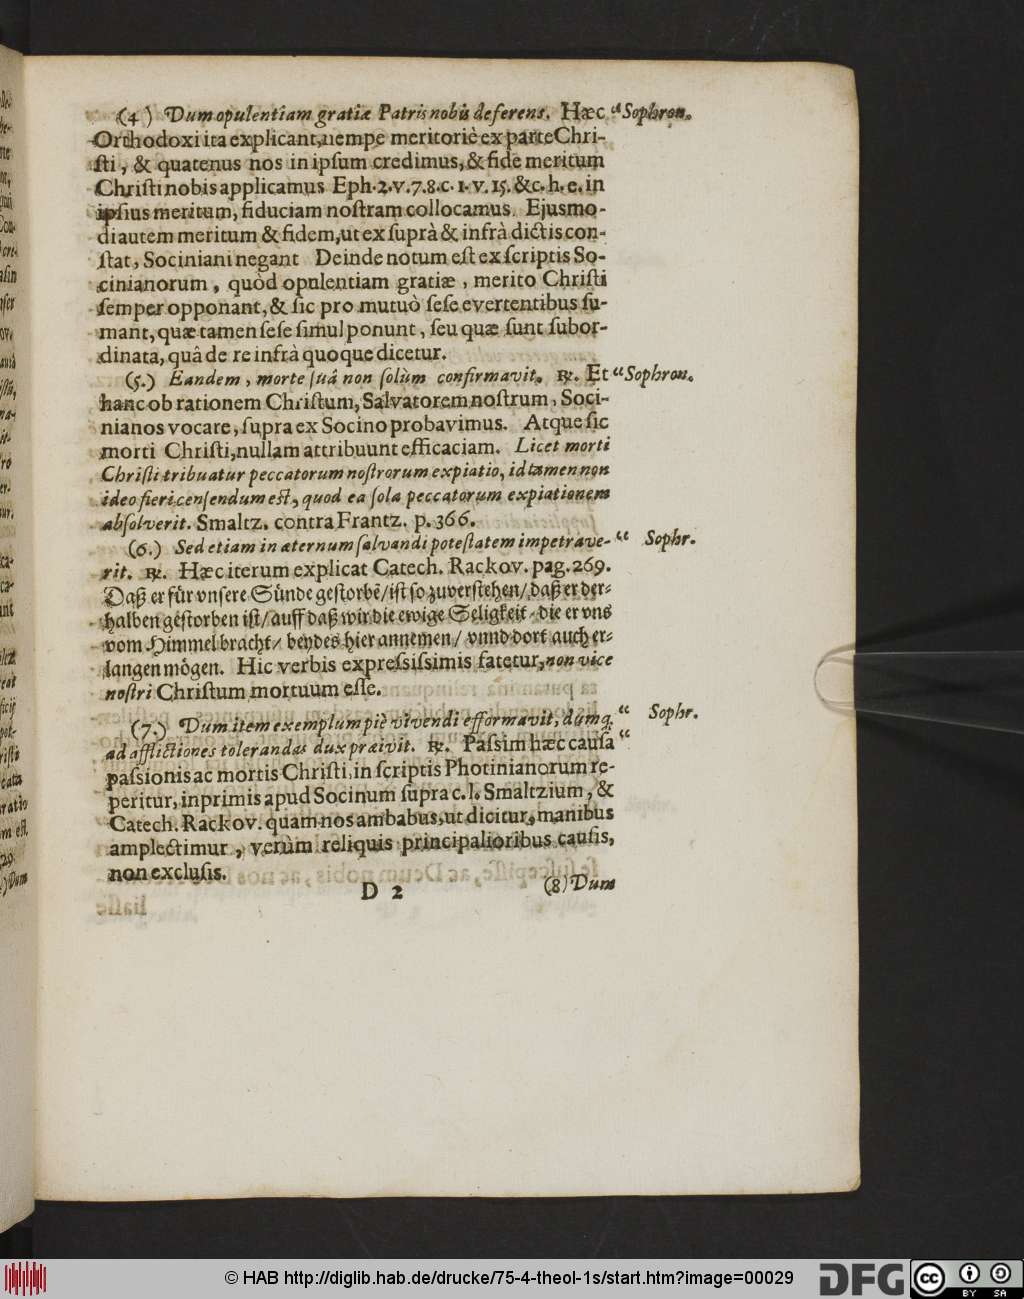 (4) Dum opulentiam gratiæ Patris nobis deferens. Hæc “Sophron.
Orthodoxi ita explicant, nempe meritoriè ex parte Chri-
ſti, & quatenus nos in ipſum credimus, & fide meritum
Chriſti nobis applicamus Eph. 2. v. 7. 8. c. 1. v. 15. &c. h. e. in
ipſius meritum, fiduciam noſtram collocamus. Ejusmo-
di autem meritum & fidem, ut ex ſuprà & infrà dictis con-
ſtat, Sociniani negant Deinde notum eſt ex ſcriptis So-
cinianorum, quòd opulentiam gratiæ, merito Chriſti
ſemper opponant, & ſic pro mutuò ſeſe evertentibus ſu-
mant, quæ tamen ſeſe ſimul ponunt, ſeu quæ ſunt ſubor-
dinata, quâ de re infrà quoque dicetur.
(5.) Eandem, morte ſuâ non ſolùm confirmavit. ℞. Et “Sophron.
hanc ob rationem Chriſtum, Salvatorem noſtrum, Soci-
nianos vocare, ſupra ex Socino probavimus. Atque ſic
morti Chriſti, nullam attribuunt efficaciam. Licet morti
Chriſti tribuatur peccatorum noſtrorum expiatio, id tamen non
ideo fieri cenſendum eſt, quod ea ſola peccatorum expiationem
abſolverit. Smaltz. contra Frantz. p. 366.
(6.) Sed etiam in æternum ſalvandi poteſtatem impetrave- “ Sophr.
rit. ℞. Hæc iterum explicat Catech. Rackov. pag. 269.
Daß er für vnſere Sünde geſtorbē/ iſt ſo zuverſtehen/ daß er der-
halben geſtorben iſt/ auff daß wir die ewige Seligkeit/ die er vns
vom Himmel bracht/ beydes hier annemen/ vnnd dort auch er-
langen mögen. Hic verbis expreſsiſsimis fatetur, non vice
noſtri Chriſtum mortuum eſſe.
(7.) Dum item exemplum piè vivendi efformavit, dumq. “ Sophr.
ad afflictiones tolerandas dux præivit. ℞. Paſsim hæc cauſa “
paſsionis ac mortis Chriſti, in ſcriptis Photinianorum re-
peritur, inprimis apud Socinum ſupra c. l. Smaltzium, &
Catech. Rackov. quam nos ambabus, ut dicitur, manibus
amplectimur, verùm reliquis principalioribus cauſis,
non excluſis.
D 2 (8) Dum
© HAB http://diglib.hab.de/drucke/75-4-theol-1s/start.htm?image=00029 DFG cc BY SA